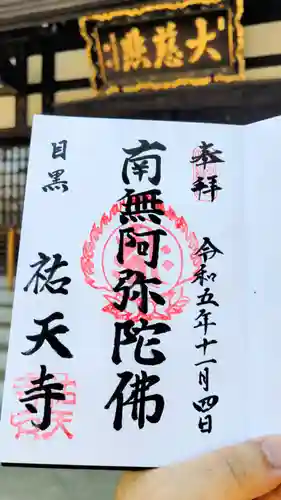 大慈殿
奉拝
令和五年十一月四日
南無阿弥陀佛
目黒
祐天寺